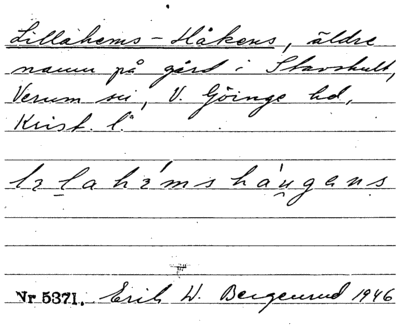 Lillahems-Håkens, äldre
namn på gård i Stavshult,
Verum sn, V. Göinge hd,
Krist. l.
Nr 5371. Erik W. Bergenrud 1946